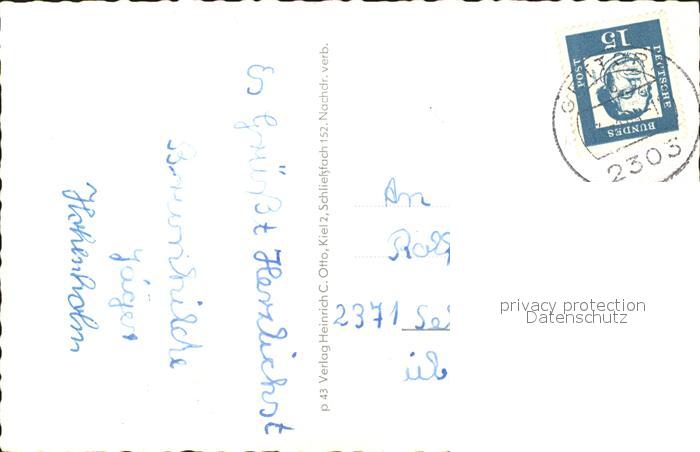 Es Grüßt Herzlichst
Brunhilde
Jäger
Hohenholm
p 43 Verlag Heinrich C. Otto, Kiel 2, Schließfach 152. Nachdr. verb.
An
2371
üb
15
DEUTSCHE
BUNDES
POST
2303
privacy protection
Datenschutz